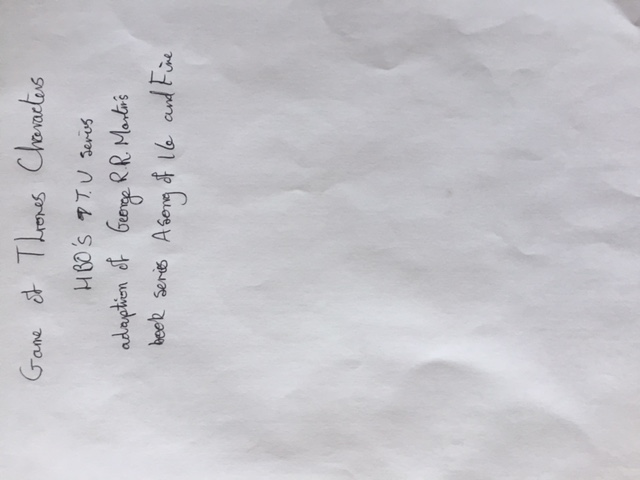 Game of Thrones Characters
HBO'S T.V series
adaption of George R.R. Martin's
book series A song of Ice and Fire